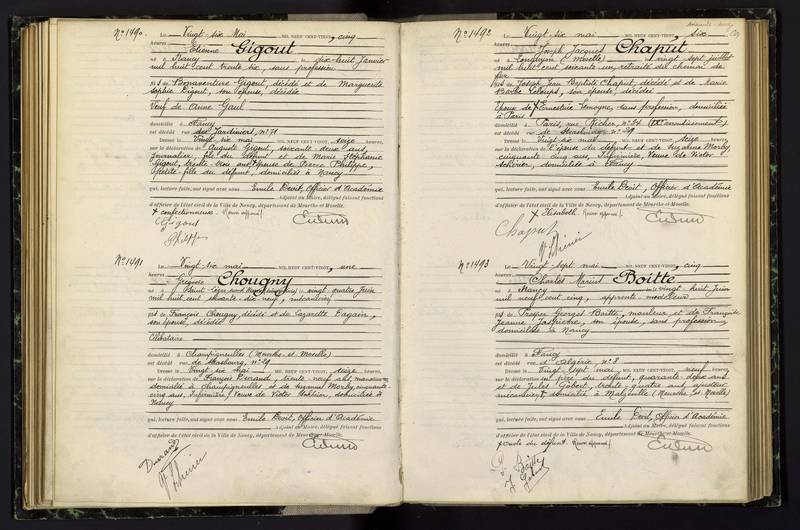 N° 1490. Le Vingt-six Mai MIL NEUF CENT-VINGT, cinq
heures,
Etienne Gigout
né à Nancy le dix-huit Janvier
mil huit cent trente six, sans profession
fils de Bonaventure Gigout, décédé et de Marguerite
Sophie Digout, son épouse, décédée
Veuf de Anne Gaul
domicilié à Nancy
est décédé rue des Jardiniers, n° 71
Dressé le Vingt six mai MIL NEUF CENT-VINGT, seize heures,
sur la déclaration de Auguste Gigout, soixante-deux ans
journalier, fils du défunt et de Marie Stéphanie
Gigout, trente ans, épouse de Pierre Philippe,
petite-fille du défunt, domiciliés à Nancy
qui, lecture faite, ont signé avec nous Emile Devit, Officier d'Académie
Adjoint au Maire, délégué faisant fonctions
d'officier de l'état civil de la Ville de Nancy, département de Meurthe-et-Moselle.
+ confectionneuse. (Renvoi approuvé)
Gigout
N° 1491 Le Vingt-six mai MIL NEUF CENT-VINGT, une
heures,
Chougny
né à le vingt quatre Juin
mil huit cent soixante-six neuf, mécanicien
fils de François Chougny, décédé et de Lazarette Pagain,
son épouse, décédée
Célibataire
domicilié à Champigneulles (Meurthe-et-Moselle)
est décédé rue de Strasbourg, n° 29
Dressé le Vingt-six mai MIL NEUF CENT-VINGT, seize heures,
sur la déclaration de François Durand, trente neuf ans,
domicilié à Champigneulles et de Suzanne Morby, cinquante
cinq ans, Infirmière, Veuve de Victor domiciliée à
Nancy
qui, lecture faite, ont signé avec nous Emile Devit, Officier d'Académie
Adjoint au Maire, délégué faisant fonctions
d'officier de l'état civil de la Ville de Nancy, département de Meurthe-et-Moselle.
Durand
N° 1492 Le Vingt-six mai MIL NEUF CENT-VINGT, six
heures,
Joseph Jacques Chaput
né à Longuyon (Moselle) le vingt sept juillet
mil huit cent soixante un, retraité du chemin de
fer
fils de Joseph Jean Baptiste Chaput, décédé et de Marie
son épouse, décédée
Epoux de Ernestine Lemoyne, sans profession, domiciliée
à Paris
domicilié à Paris, rue Richer, n° 24 (IX° arrondissement)
est décédé rue de Strasbourg n° 29
Dressé le Vingt-six mai MIL NEUF CENT-VINGT, seize heures,
sur la déclaration de l'épouse du défunt et de Suzanne Morby,
cinquante cinq ans, Infirmière, Veuve de Victor
domiciliée à Nancy
qui, lecture faite, ont signé avec nous Emile Devit, Officier d'Académie
Adjoint au Maire, délégué faisant fonctions
d'officier de l'état civil de la Ville de Nancy, département de Meurthe-et-Moselle.
+ Elisabeth. (Renvoi approuvé)
Chaput
N° 1493 Le Vingt sept mai MIL NEUF CENT-VINGT, cinq
heures,
Charles Marcel Boitte
né à Nancy le vingt huit Juin
mil neuf cent cinq, apprenti modeleur
fils de Prosper Georges Boitte, mouleur et de Françoise
Jeanne son épouse, sans profession
domiciliés à Nancy
domicilié à Nancy
est décédé rue d'Algérie n° 8
Dressé le Vingt sept mai MIL NEUF CENT-VINGT, neuf heures,
sur la déclaration du père du défunt, quarante deux ans
et de Jules Gobert, trente quatre ans, ajusteur
mécanicien, domicilié à Malzéville (Meurthe et Moselle)
qui, lecture faite, ont signé avec nous Emile Devit, Officier d'Académie
Adjoint au Maire, délégué faisant fonctions
d'officier de l'état civil de la Ville de Nancy, département de Meurthe-et-Moselle.
+ Oncle du défunt. (Renvoi approuvé)